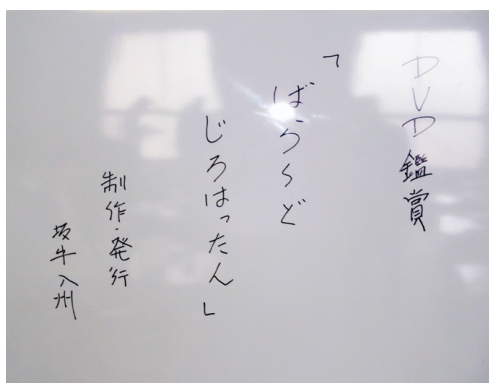 DVD鑑賞
「ばらくど
じろはったん」
制作・発行
坂牛入州